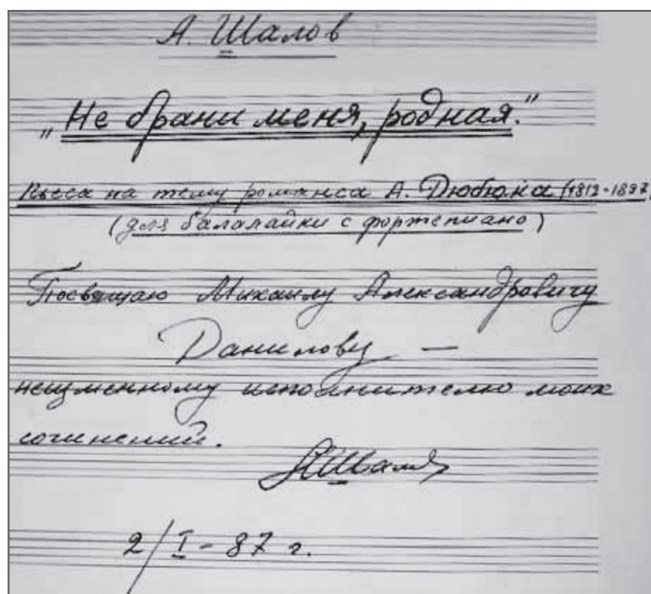 А. Шалов
„Не брани меня, родная."
Пьеса на тему романса А. Дюбюка (1812-1897)
(для балалайки с фортепиано)
Посвящаю Михаилу Александровичу
Данилову —
неизменному исполнителю моих
сочинений.
АШалов
2/I-87 г.